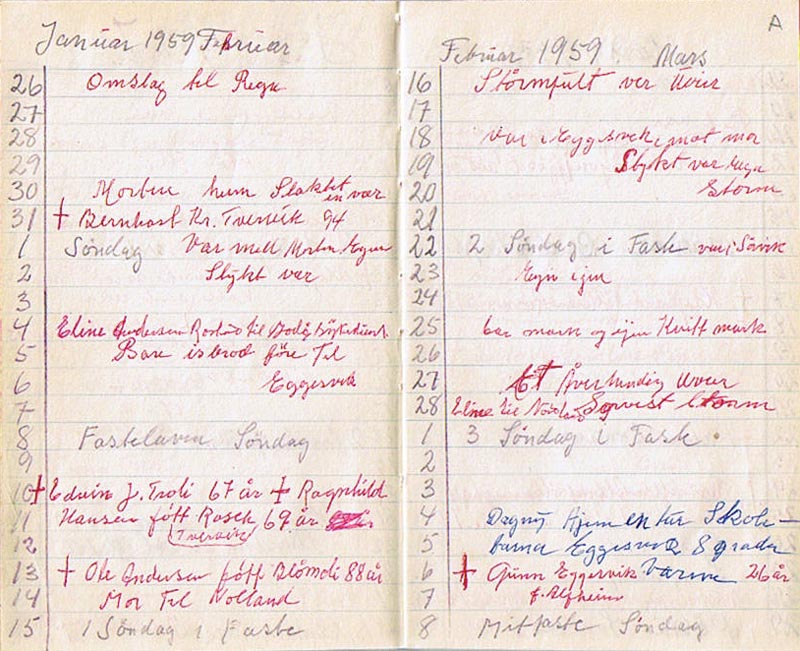 Januar 1959 Februar
26 Omslag til Regn
27
28
29
30 Morten hum Slaktet
en vær
31 + Bernhart Kr. Tvervik 94
1 Søndag Var med Morten
2 Slykt vær
3
4 Eline Andersen til Bodø
5 Bare isbrod føre Til
6 Eggesvik
7
8 Fastelaven Søndag
9
10 + Edvin J. Troli 67 år + Ragnhild
11 Hansen fött Rosek 69 år
12 Tvervik
13 + Ole Andersen fött Blomdi 88 år
14 Mor Til Nolland
15 1 Söndag i Faste
A
Februar 1959. Mars
16 Stormfult ver Uveir
17
18 var i Eggesvek i mot mor
19 Slykt ver Regn
20 Storm
21
22 2 Söndag i Faste var i Sörvik
23 Regn igjen
24
25 bar mark og igjen Kvitt mark
26
27 Et Överhendig Uveir
28 Eline til Sørvest Storm
1 3 Söndag i Faste.
2
3
4 Dagny Hjem en tur Skole-
5 barna Eggesvik 8 grader
6 + Gunn Eggesvik Varme 26 år
7 f. Alfheim
8 Mitfaste Söndag